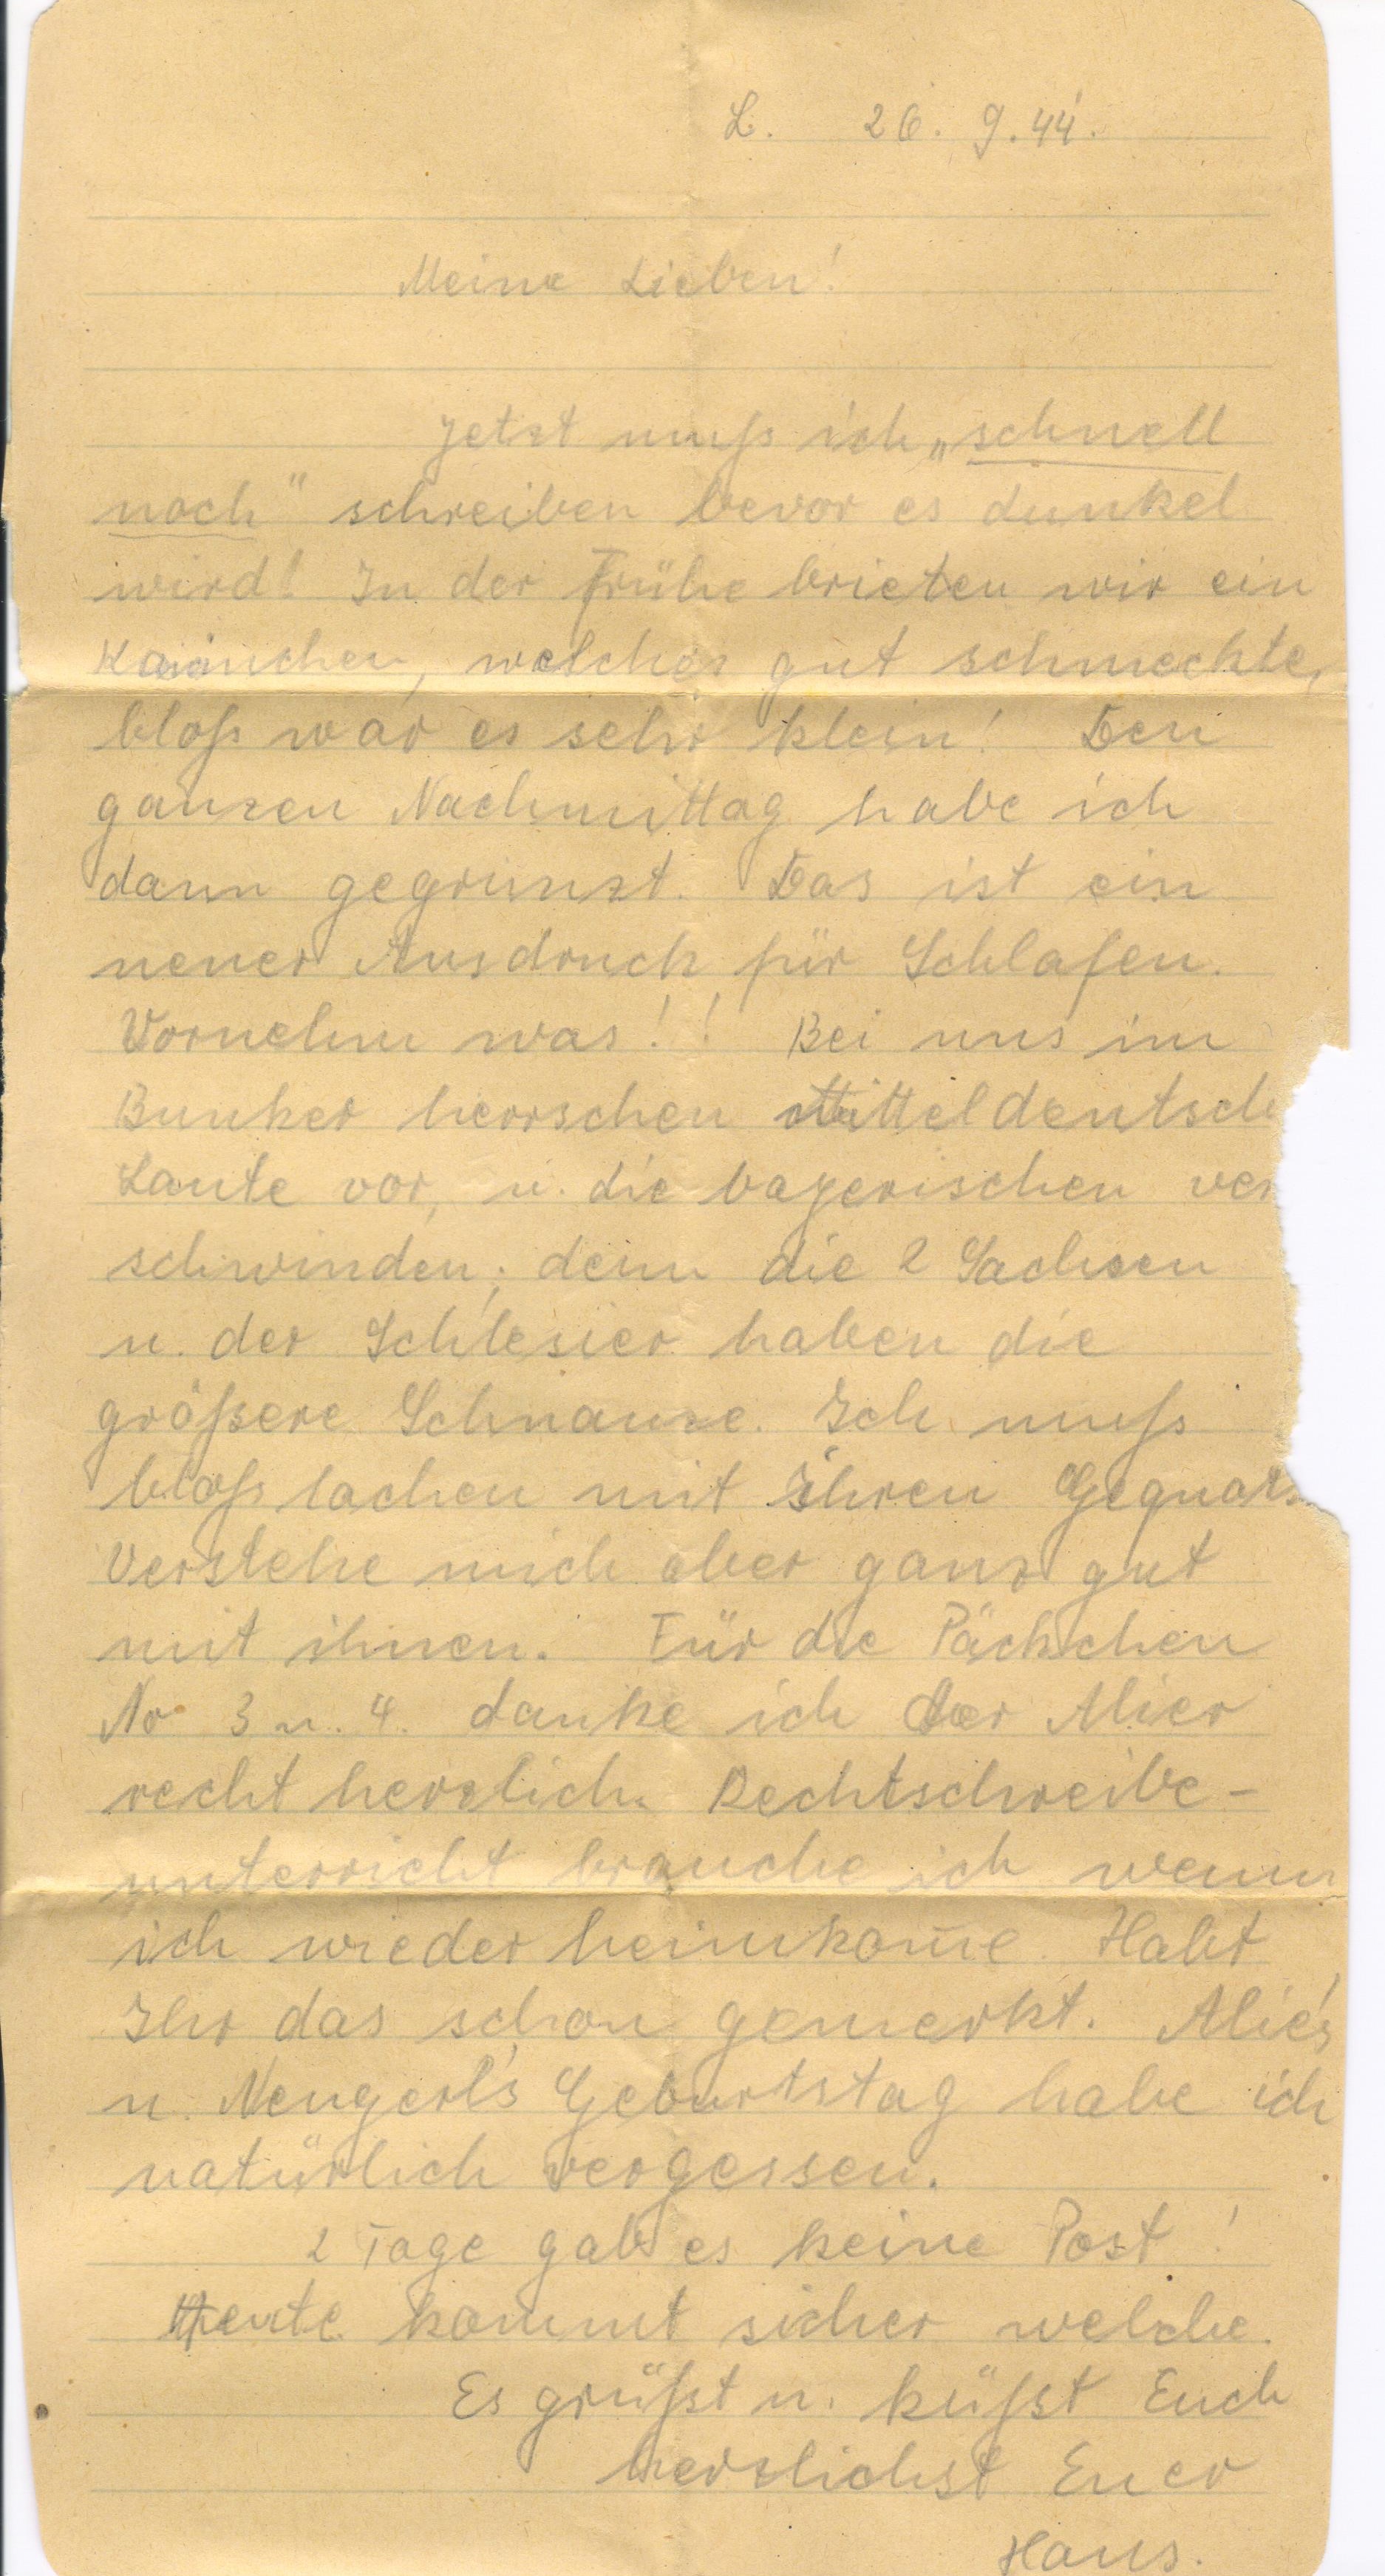 L. 26. 9. 44.
Meine Lieben!
Jetzt muß ich „schnell
noch" schreiben bevor es dunkel
wird! In der Frühe brieten wir ein
Kaninchen, welches gut schmeckte,
bloß war es sehr klein! Den
ganzen Nachmittag habe ich
dann gegrunzt. Das ist ein
neuer Ausdruck für Schlafen.
Vornehm was!! Bei uns im
Bunker herrschen mitteldeutsche
Laute vor, u. die bayerischen ver
schwinden; denn die 2 Sachsen
u. der Schlesier haben die
größere Schnauze. Ich muß
bloß lachen mit ihren
Verstehe mich aber ganz gut
mit ihnen. Für die Päckchen
No 3 u. 4. danke ich der
recht herzlich. Rechtschreibe-
unterricht brauche ich wenn
ich wieder heimkom̄e. Habt
Ihr das schon gemerkt.
u. Geburtstag habe ich
natürlich vergessen.
2 Tage gab es keine Post!
Heute kommt sicher welche.
Es grüßt u. küßt Euch
herzlichst Euer
Hans.